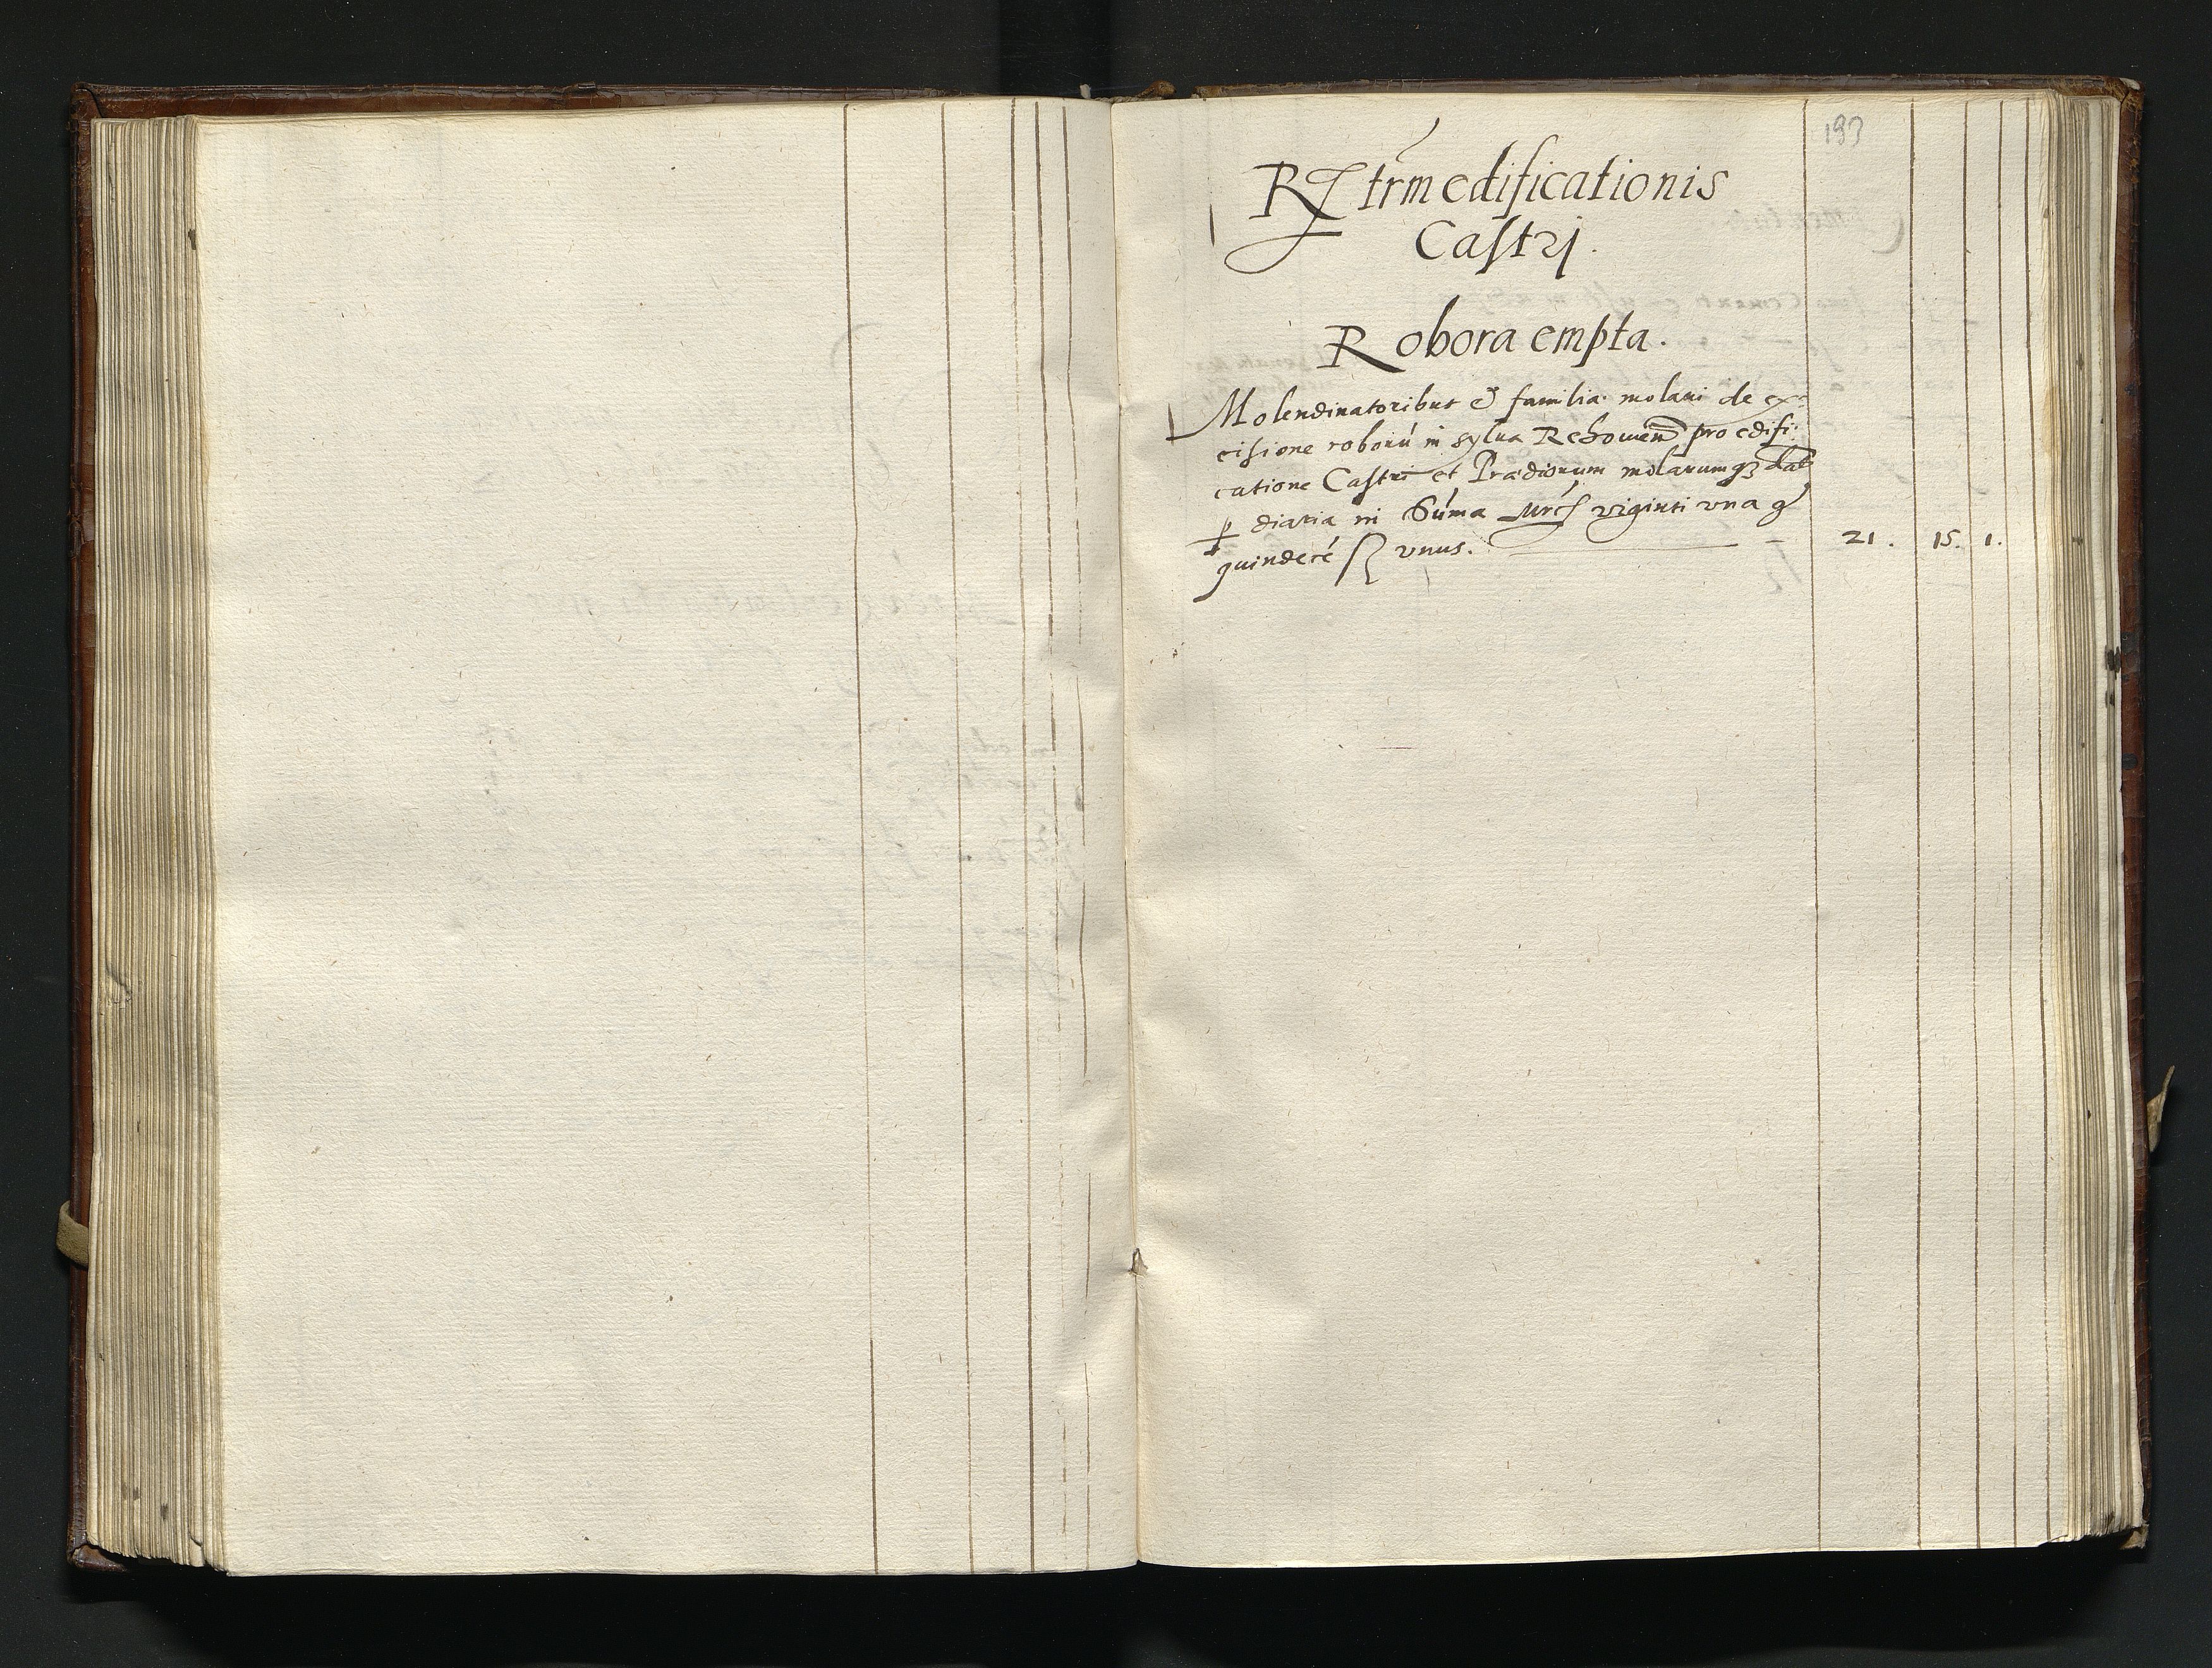 193
Rῖtrm edificationis
Castrj.
Robora empta.
Molendinatoribus et familiae molari de ex=
cisione roború in sylua Rehouien pro edifi:
catione Castri et Prædiorum molarumqȝ dat
ꝑ diaria in Súma Mrcſ viginti vna gͬ
quindecé ſ vnus. 21. 15. 1.